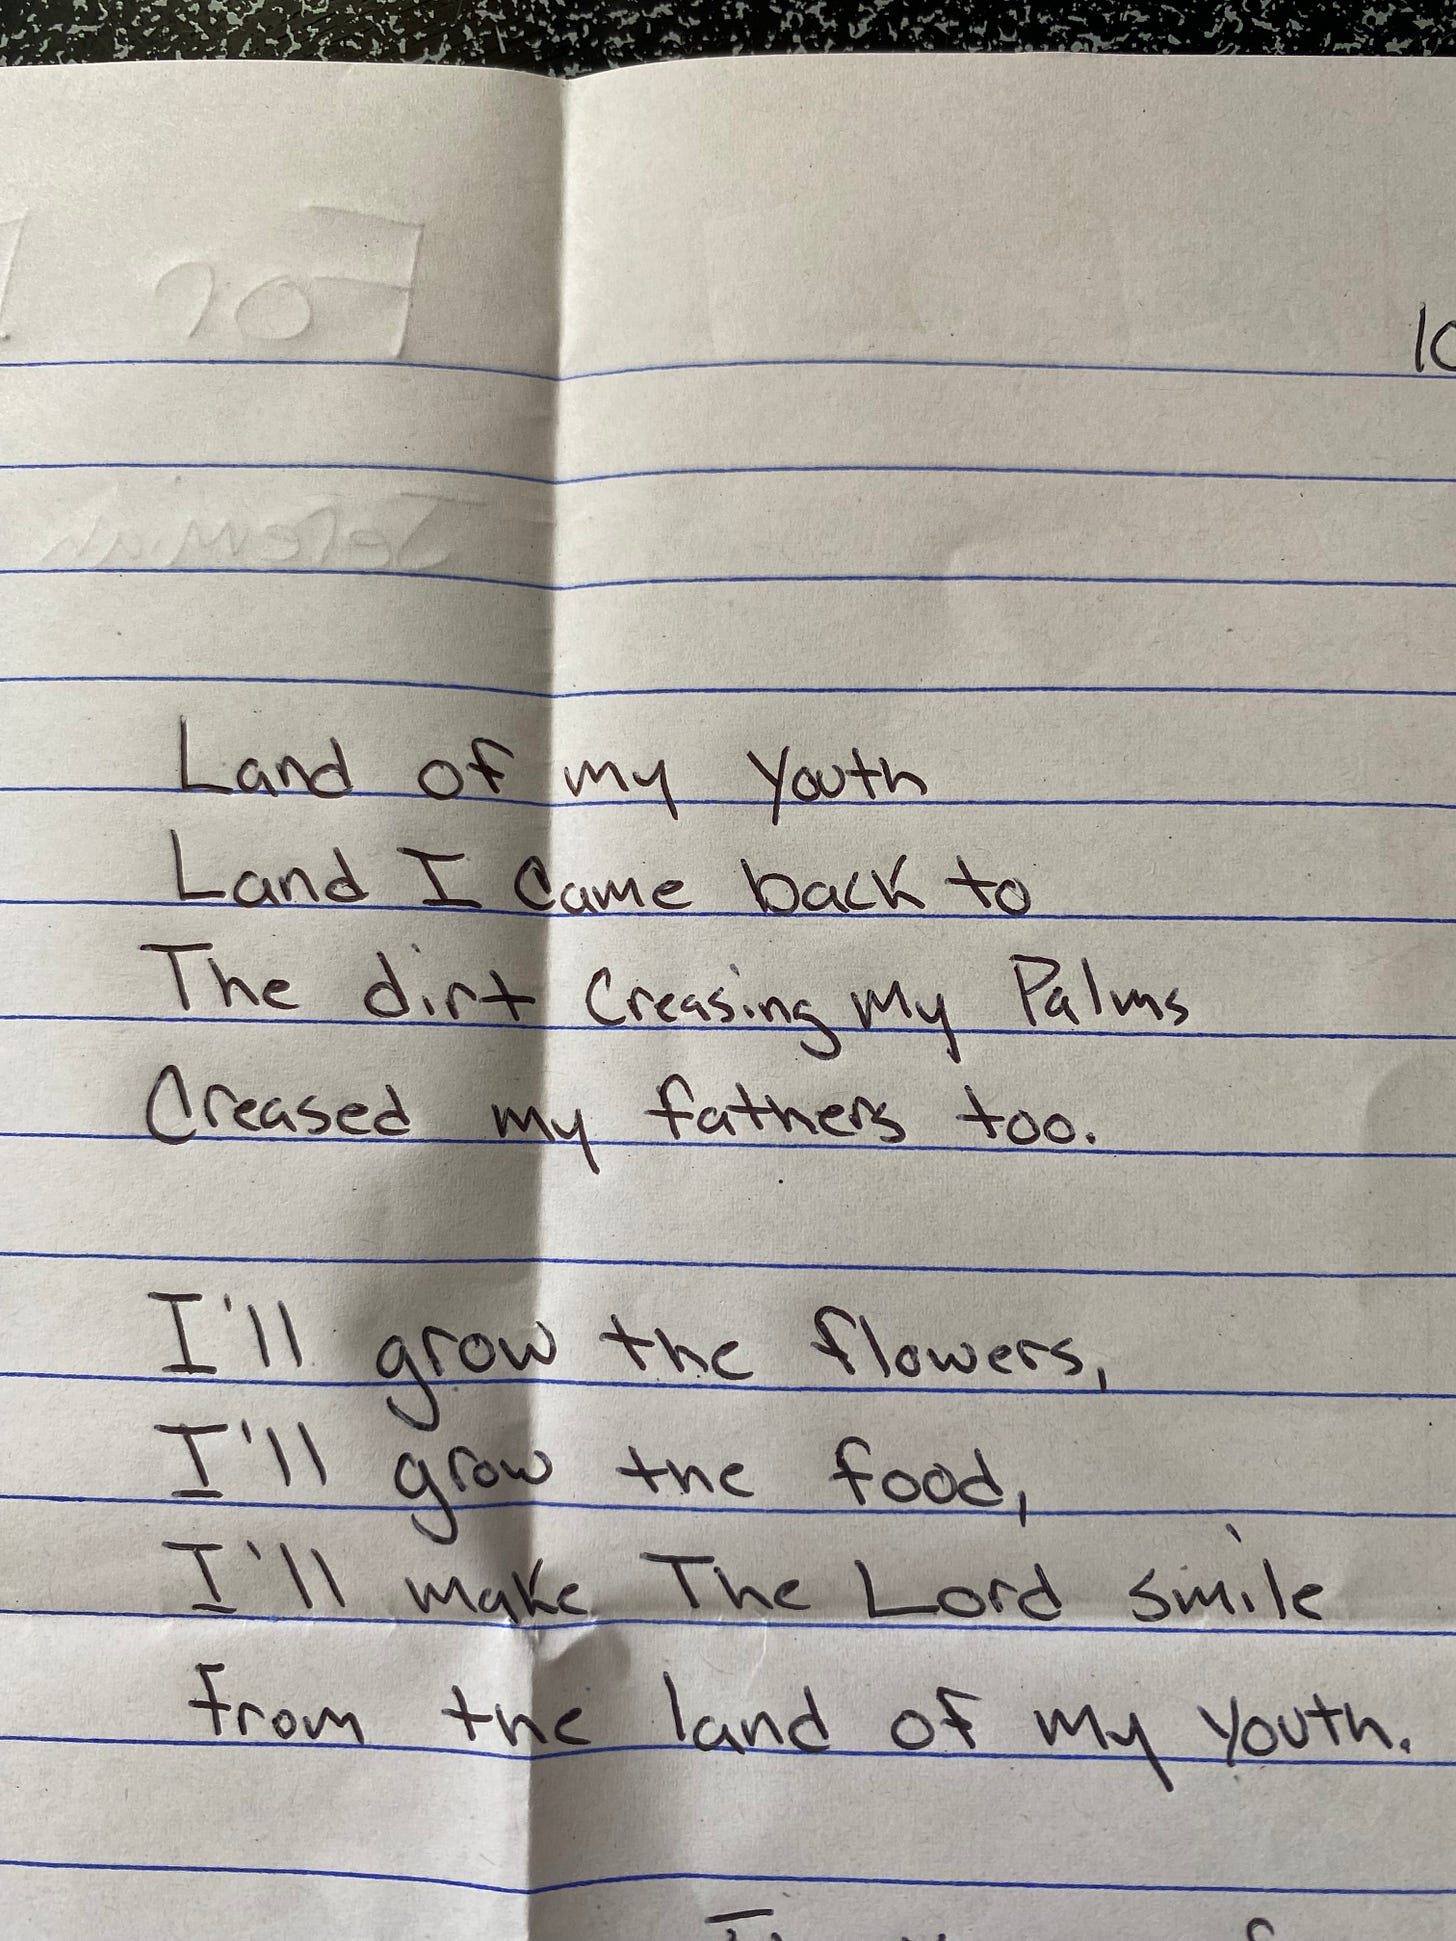 For
Jeremiah
Land of my Youth
Land I Came back to
The dirt Creasing my Palms
Creased my fathers too.
I'll grow the flowers,
I'll grow the food,
I'll make The Lord smile
from the land of my youth.